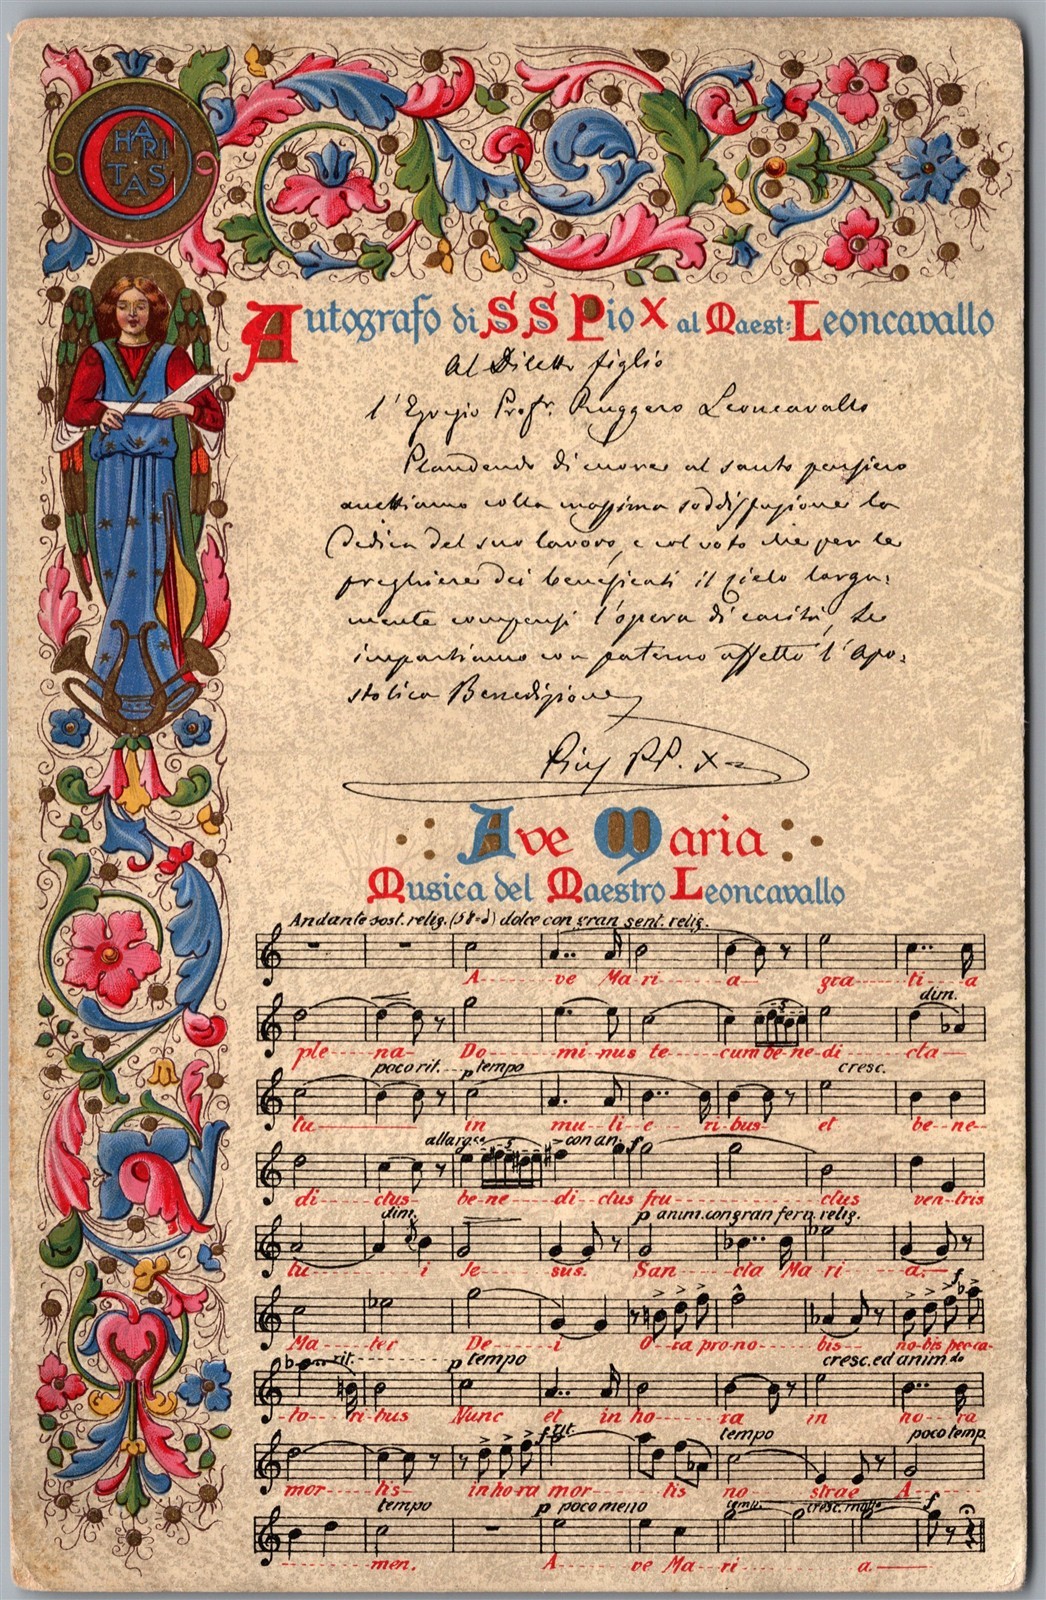 CHARITAS
Autografo di SS Pio X al Maest: Leoncavallo
Al Diletto figlio
l'Egregio Profr. Ruggero Leoncavallo
Plaudendo di cuore al santo pensiero
accettiamo colla massima soddisfazione la
Dedica del suo lavoro, e col voto che per le
preghiere dei beneficati il Cielo larga:
mente compensi l'opera di carità, Le
impartiamo con paterno affetto l'Apo:
stolica Benedizione
Pius PP. X
Ave Maria
Musica del Maestro Leoncavallo
Andante sost. relig. (58=d) dolce con gran sent. relig.
A---ve Ma-ri---a---gra---ti---a
dim.
ple---na- Do---mi-nus te---cum be-ne-di---cta
poco rit. p tempo cresc.
tu---in---mu-li-e-ri-bus---et---be-ne-
allarg. con an. f
di---ctus---be-ne---di-ctus fru---ctus---ven-tris
dim. p anim. con gran ferv. relig.
tu---i---Je---sus. San---cta Ma-ri---a.
f
Ma---ter---De---i---O-ra pro-no---bis---no-bis pec-ca-
rit. p tempo cresc. ed anim.do
to---ri-bus Nunc---et---in ho---ra---in---ho---ra
f rit. tempo poco temp.
mor---tis---in ho-ra mor---tis---no---strae---A---
tempo p poco meno cresc. molto f
men. A---ve Ma-ri---a.